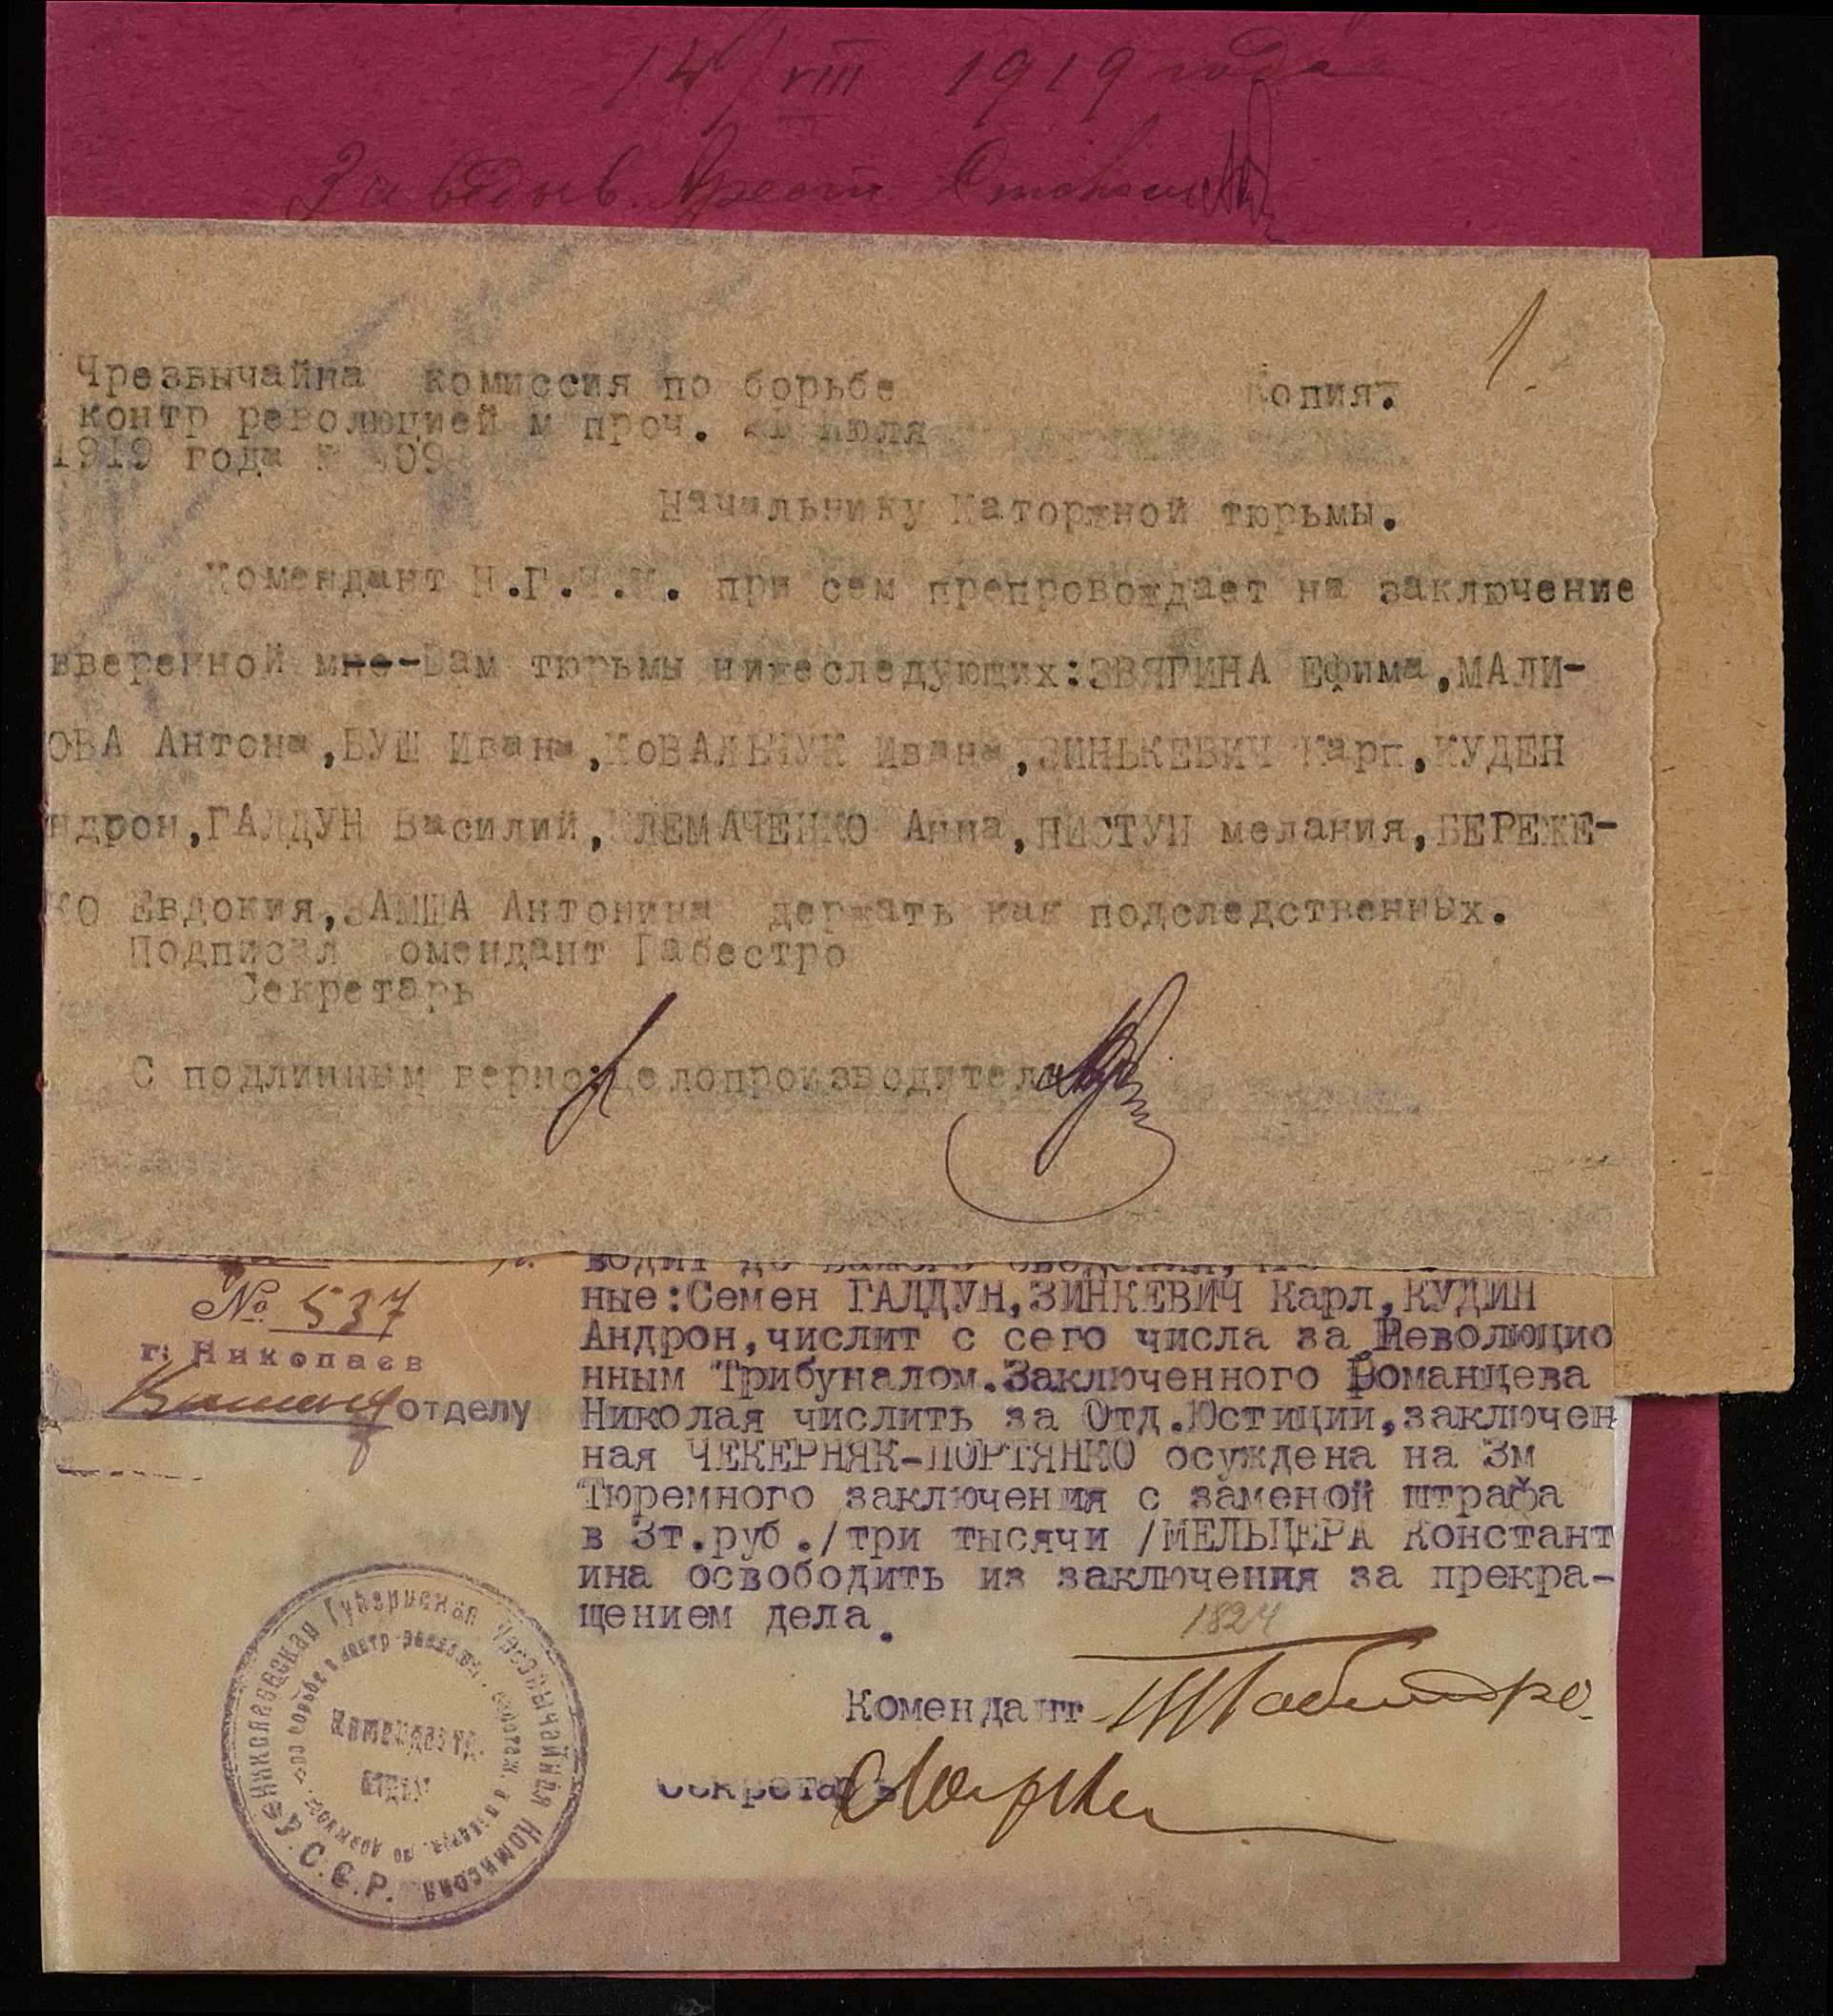 14/VIII 1919 года
Заведыв. Арест
1.
Чрезвычайна комиссия по борьбе
опия.
контр революцией м проч. 21 июля
1919 года № 09
Начальнику Каторжной тюрьмы.
Комендант Н.Г.Ч.К. при сем препровождает на заключение
вверенной мне-Вам тюрьмы нижеследующих:ЗВЯГИНА Ефима,МАЛИ-
ОВА Антона,БУШ Ивана,КоВАЛЬЧУК Ивана,ЗИНЬКЕВИЧ Карп,КУДЕН
ндрон,ГАЛДУН Василий, ЛЕМАЧЕНКО Анна,ПИСТУН мелания,БЕРЕЖЕ-
КО Евдокия,ЗАМША Антонина держать как подследственных.
Подписал омендант Табестро
Секретарь
С подлинным верно:делопроизводитель
водит до Вашего сведения,
ные:Семен ГАЛДУН,ЗИНКЕВИЧ Карл,КУДИН
Андрон,числит с сего числа за Революцио
нным Трибуналом.Заключенного Романцева
Николая числить за Отд.Юстиции,заключен
ная ЧЕКЕРНЯК-ПОРТЯНКО осуждена на 3м
Тюремного заключения с заменой штрафа
в 3т.руб./три тысячи /МЕЛЬЦЕРА Констант
ина освободить из заключения за прекра-
щением дела.
№ 537
г. Николаев
отделу
1824
Комендант
Секретарь
Николаевская Губернская Чрезвычайная Комиссия
У.С.С.Р.
по борьбе с контр-революц.
Комендантск.
отдел